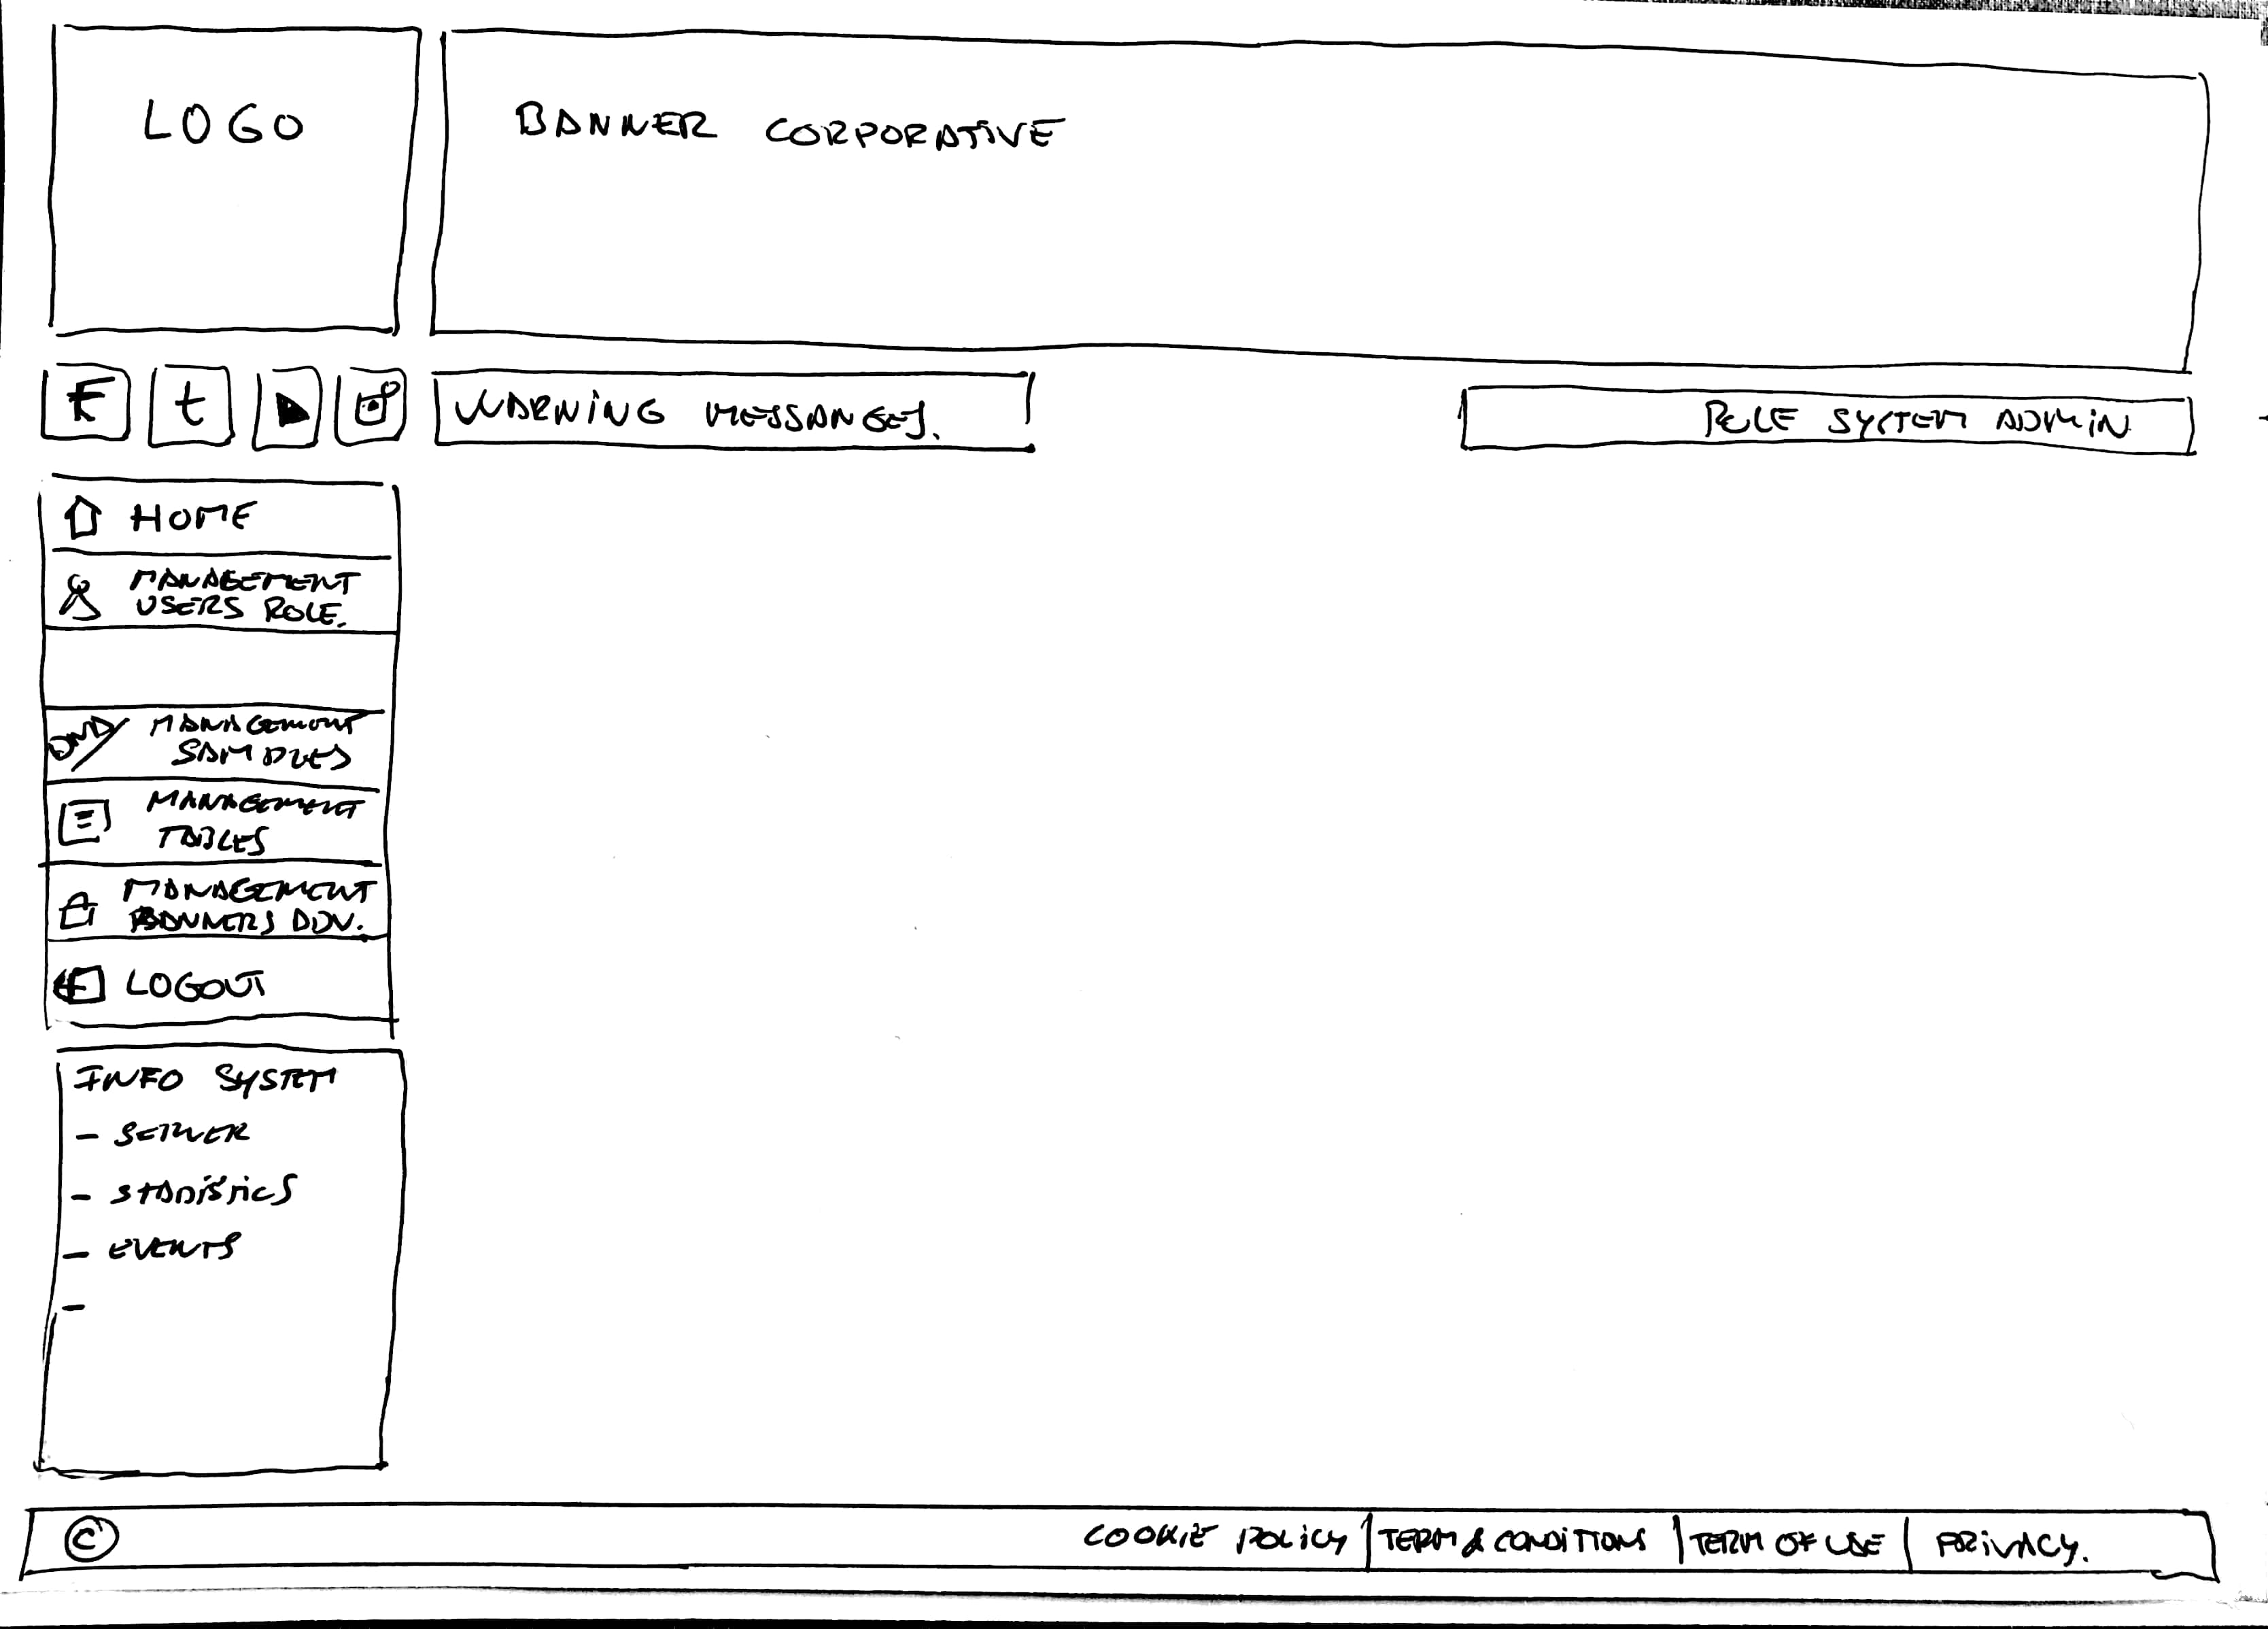 LOGO
BANNER CORPORATIVE
F t
WARNING MESSANGES.
ROLE SYSTEM ADMIN
HOME
MANAGEMENT
USERS ROLE.
MANAGEMENT
SAMPLES
MANAGEMENT
TABLES
MANAGEMENT
BANNERS ADV.
LOGOUT
INFO SYSTEM
- SERVER
- STADISTICS
- EVENTS
-
© COOKIE POLICY | TERM & CONDITIONS | TERM OF USE | PRIVACY.